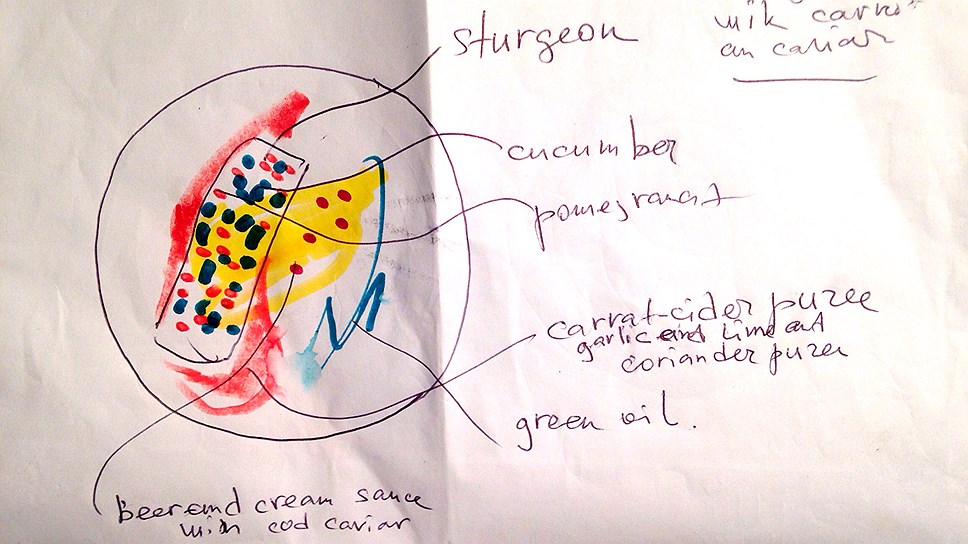 with carrot
an caviar
sturgeon
cucumber
pomegranat
carrat-cider puree
garlic and lime and
coriander puree
green oil.
beer and cream sauce
with cod caviar